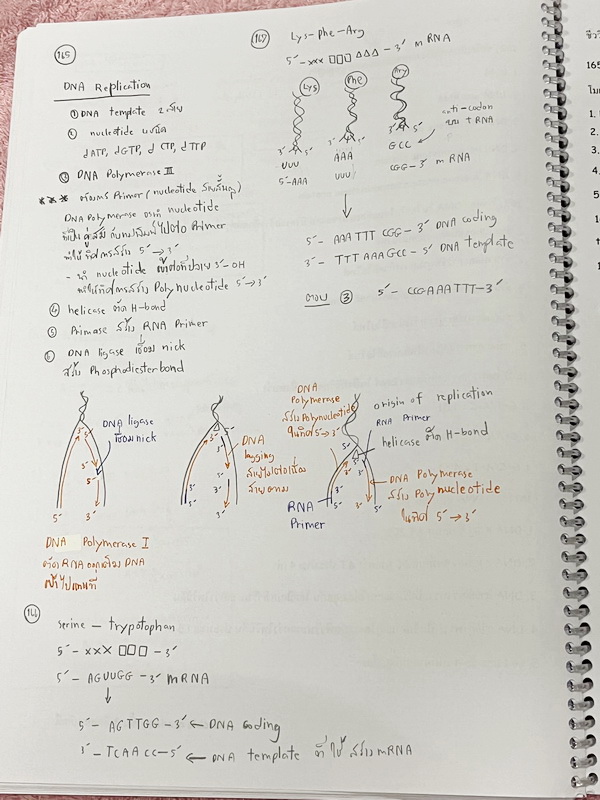 165
DNA Replication
① DNA template 2 สาย
② nucleotide 4 ชนิด
dATP, dGTP, dCTP, dTTP
③ DNA Polymerase III
*** ต้องการ Primer (nucleotide
DNA Polymerase จะนำ nucleotide
ไปต่อ Primer
5' → 3'
- นำ nucleotide 3'-OH
Polynucleotide 5' → 3'
④ helicase ตัด H-bond
⑤ Primase สร้าง RNA Primer
⑥ DNA ligase เชื่อม nick
สร้าง Phosphodiester bond
DNA ligase
เชื่อม nick
5' 3'
DNA Polymerase I
ตัด RNA ออกแล้วเอา DNA
เข้าไปแทนที่
DNA
lagging
สายไม่ต่อเนื่อง
สายตาม
5' 3'
DNA
Polymerase
สร้าง Polynucleotide
ในทิศ 5' → 3'
origin of replication
RNA Primer
helicase ตัด H-bond
DNA Polymerase
สร้าง Polynucleotide
ในทิศ 5' → 3'
RNA
Primer
166
serine - trypotophan
5' - xxx □□□ - 3'
5' - AGUUGG - 3' mRNA
↓
5' - AGTTGG - 3' ← DNA coding
3' - TCAACC - 5' ← DNA template ที่ใช้สร้าง mRNA
167
Lys - Phe - Arg
5' - xxx □□□ △△△ - 3' mRNA
Lys Phe Arg
3' 5' 3' 5' 3' 5'
UUU AAA GCC
anti-codon
บน tRNA
5'-AAA UUU CGG-3' mRNA
↓
5' - AAA TTT CGG - 3' DNA coding
3' - TTT AAA GCC - 5' DNA template
ตอบ ③ 5' - CCGAAATTT-3'
165
1.
2.
3.
4.
5.